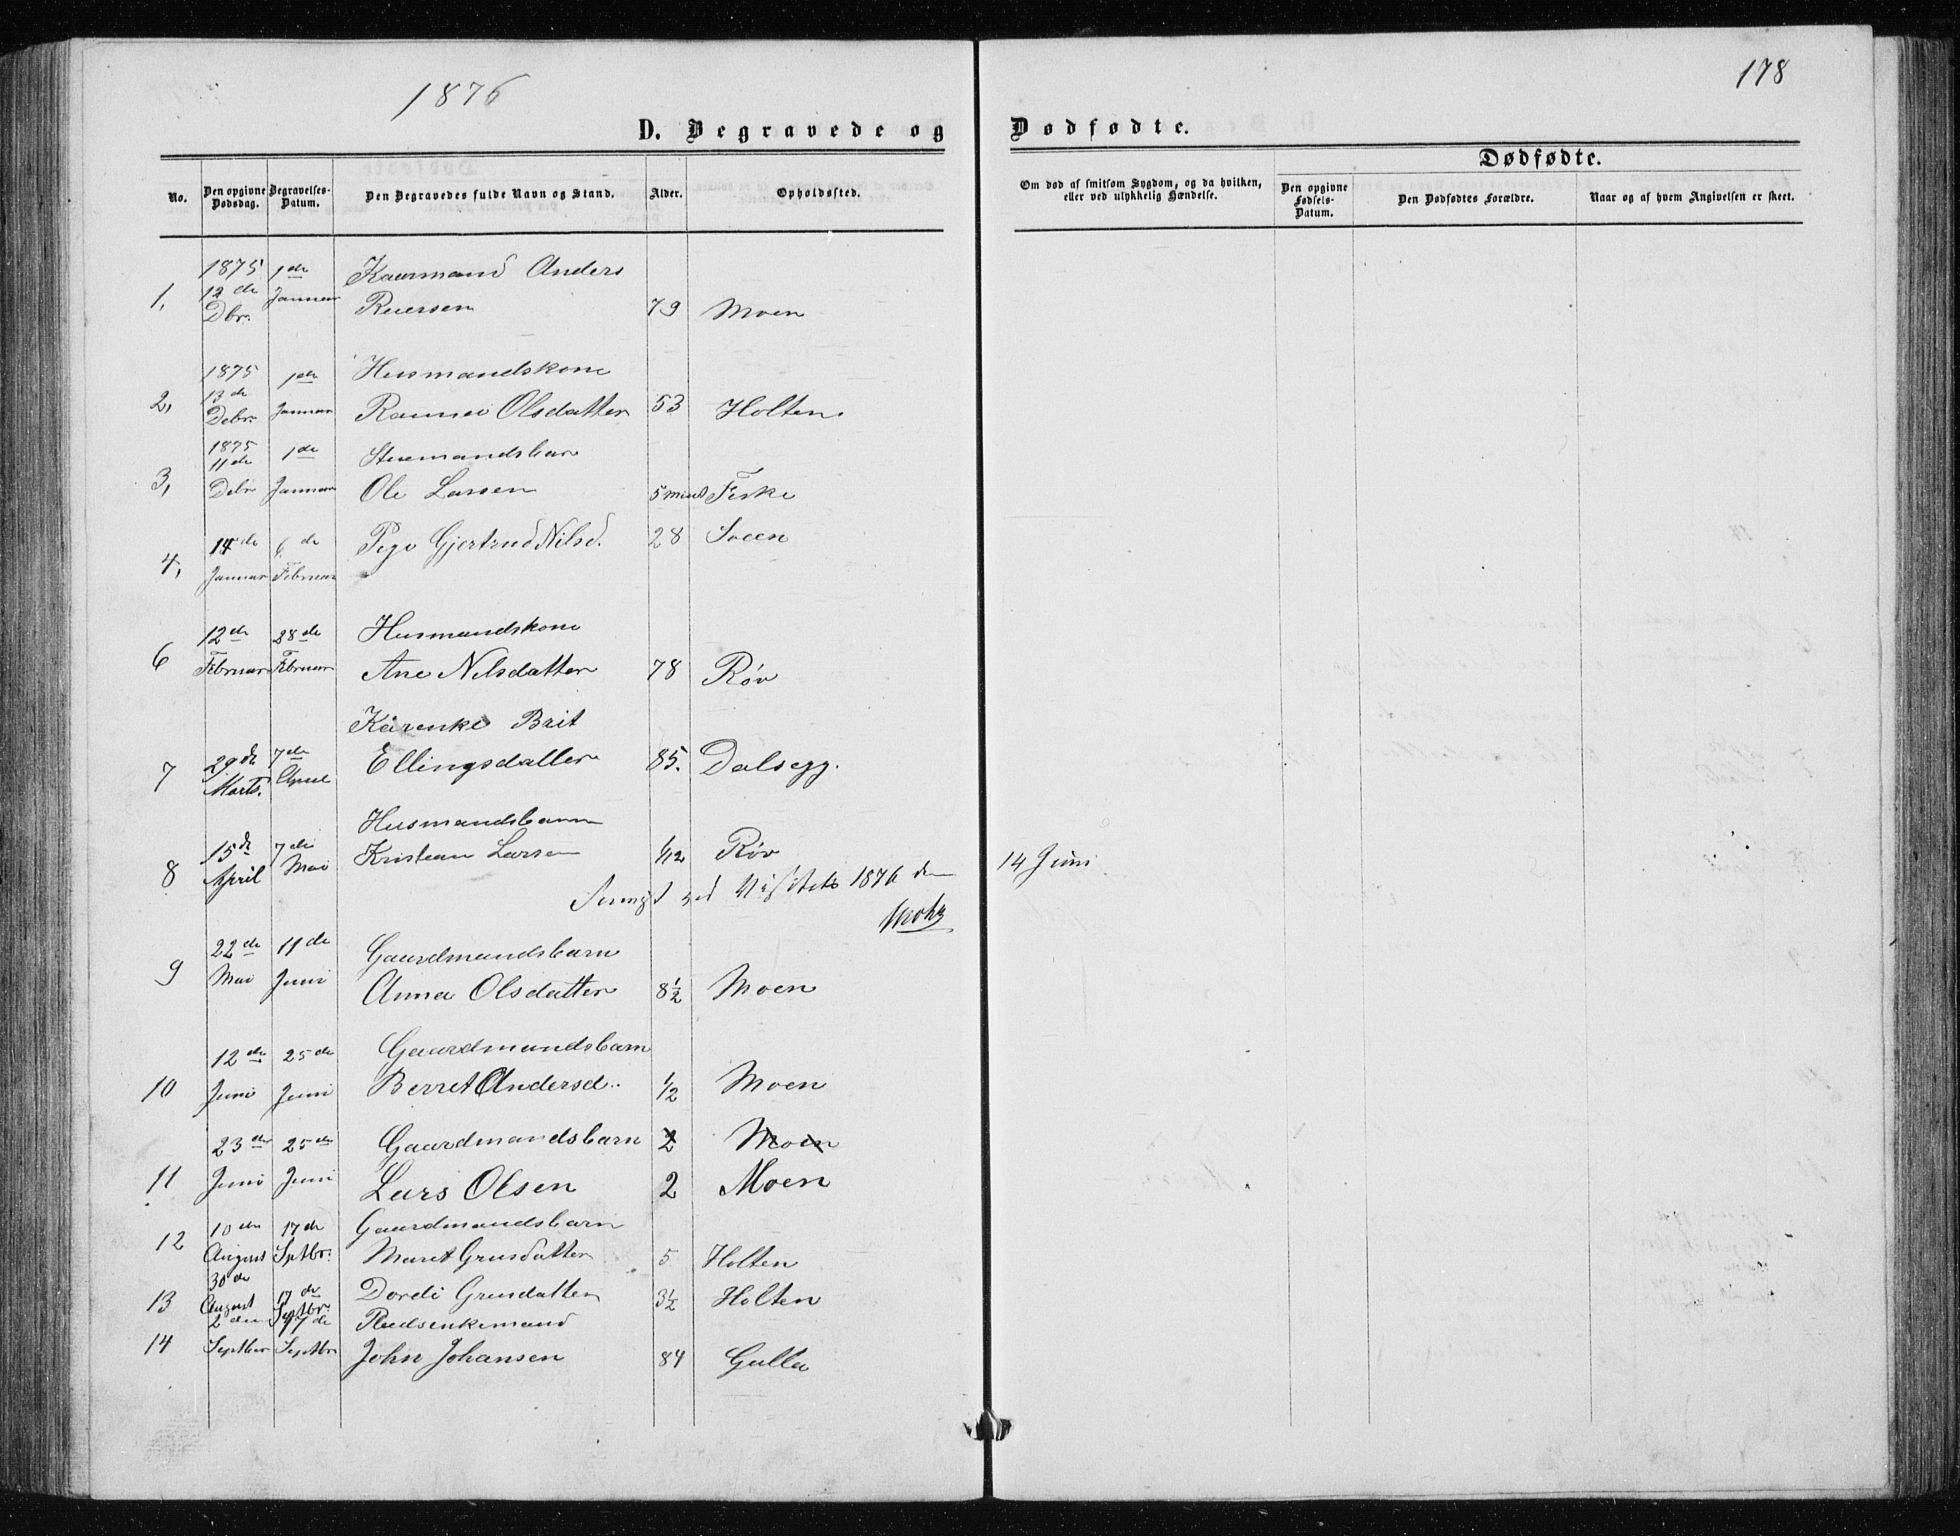 1876
178
D. Begravede og Dødfødte.
Dødfødte.
No.
Den opgivne Dødsdag.
Begravelses-Datum.
Den Begravedes fulde Navn og Stand.
Alder.
Opholdssted.
Om død af smitsom Sygdom, og da hvilken, eller ved ulykkelig Hændelse.
Den opgivne Fødsels-Datum.
Den Dødfødtes Forældre.
Naar og af hvem Angivelsen er skeet.
1875 1de Kaarmand Anders
1, 12de Dbr. Januar 79 Moen
1875 1de Husmandskone
2, 13de Debr. Januar Olsdatter 53 Holten
1875 1de
3, 11de Debr Januar Ole Larsen 5 Fiske
14de 6de Pige Gjertrud Nilsd. 28
4, Januar Februar
12de 28de Husmandskone
6 Februar Februar Ane Nilsdatter 78 Røv
Brit
7 29de Marts. 7de April Ellingsdatter 85. Dalsegg.
Husmandsbarn
8 15de April 7de Mai Kristian Larsen 1/12 Røv
ved 1876 den 14 Juni
22de 11de Gaardmandsbarn
9 Mai Juni Anna Olsdatter 8½ Moen
12de 25de Gaardmandsbarn
10 Juni Juni Berret Andersd.. ½ Moen
23de 25de Gaardmandsbarn 2 Moen
11 Juni Juni Lars Olsen 2 Moen
10de 17de Gaardmandsbarn
12 August Septbr. Maret 5 Holten
30de 17de
13 August Septbr. Dordi 3½ Holten
2den 17de
14 Septber Septbr John Johansen 84 Gulla